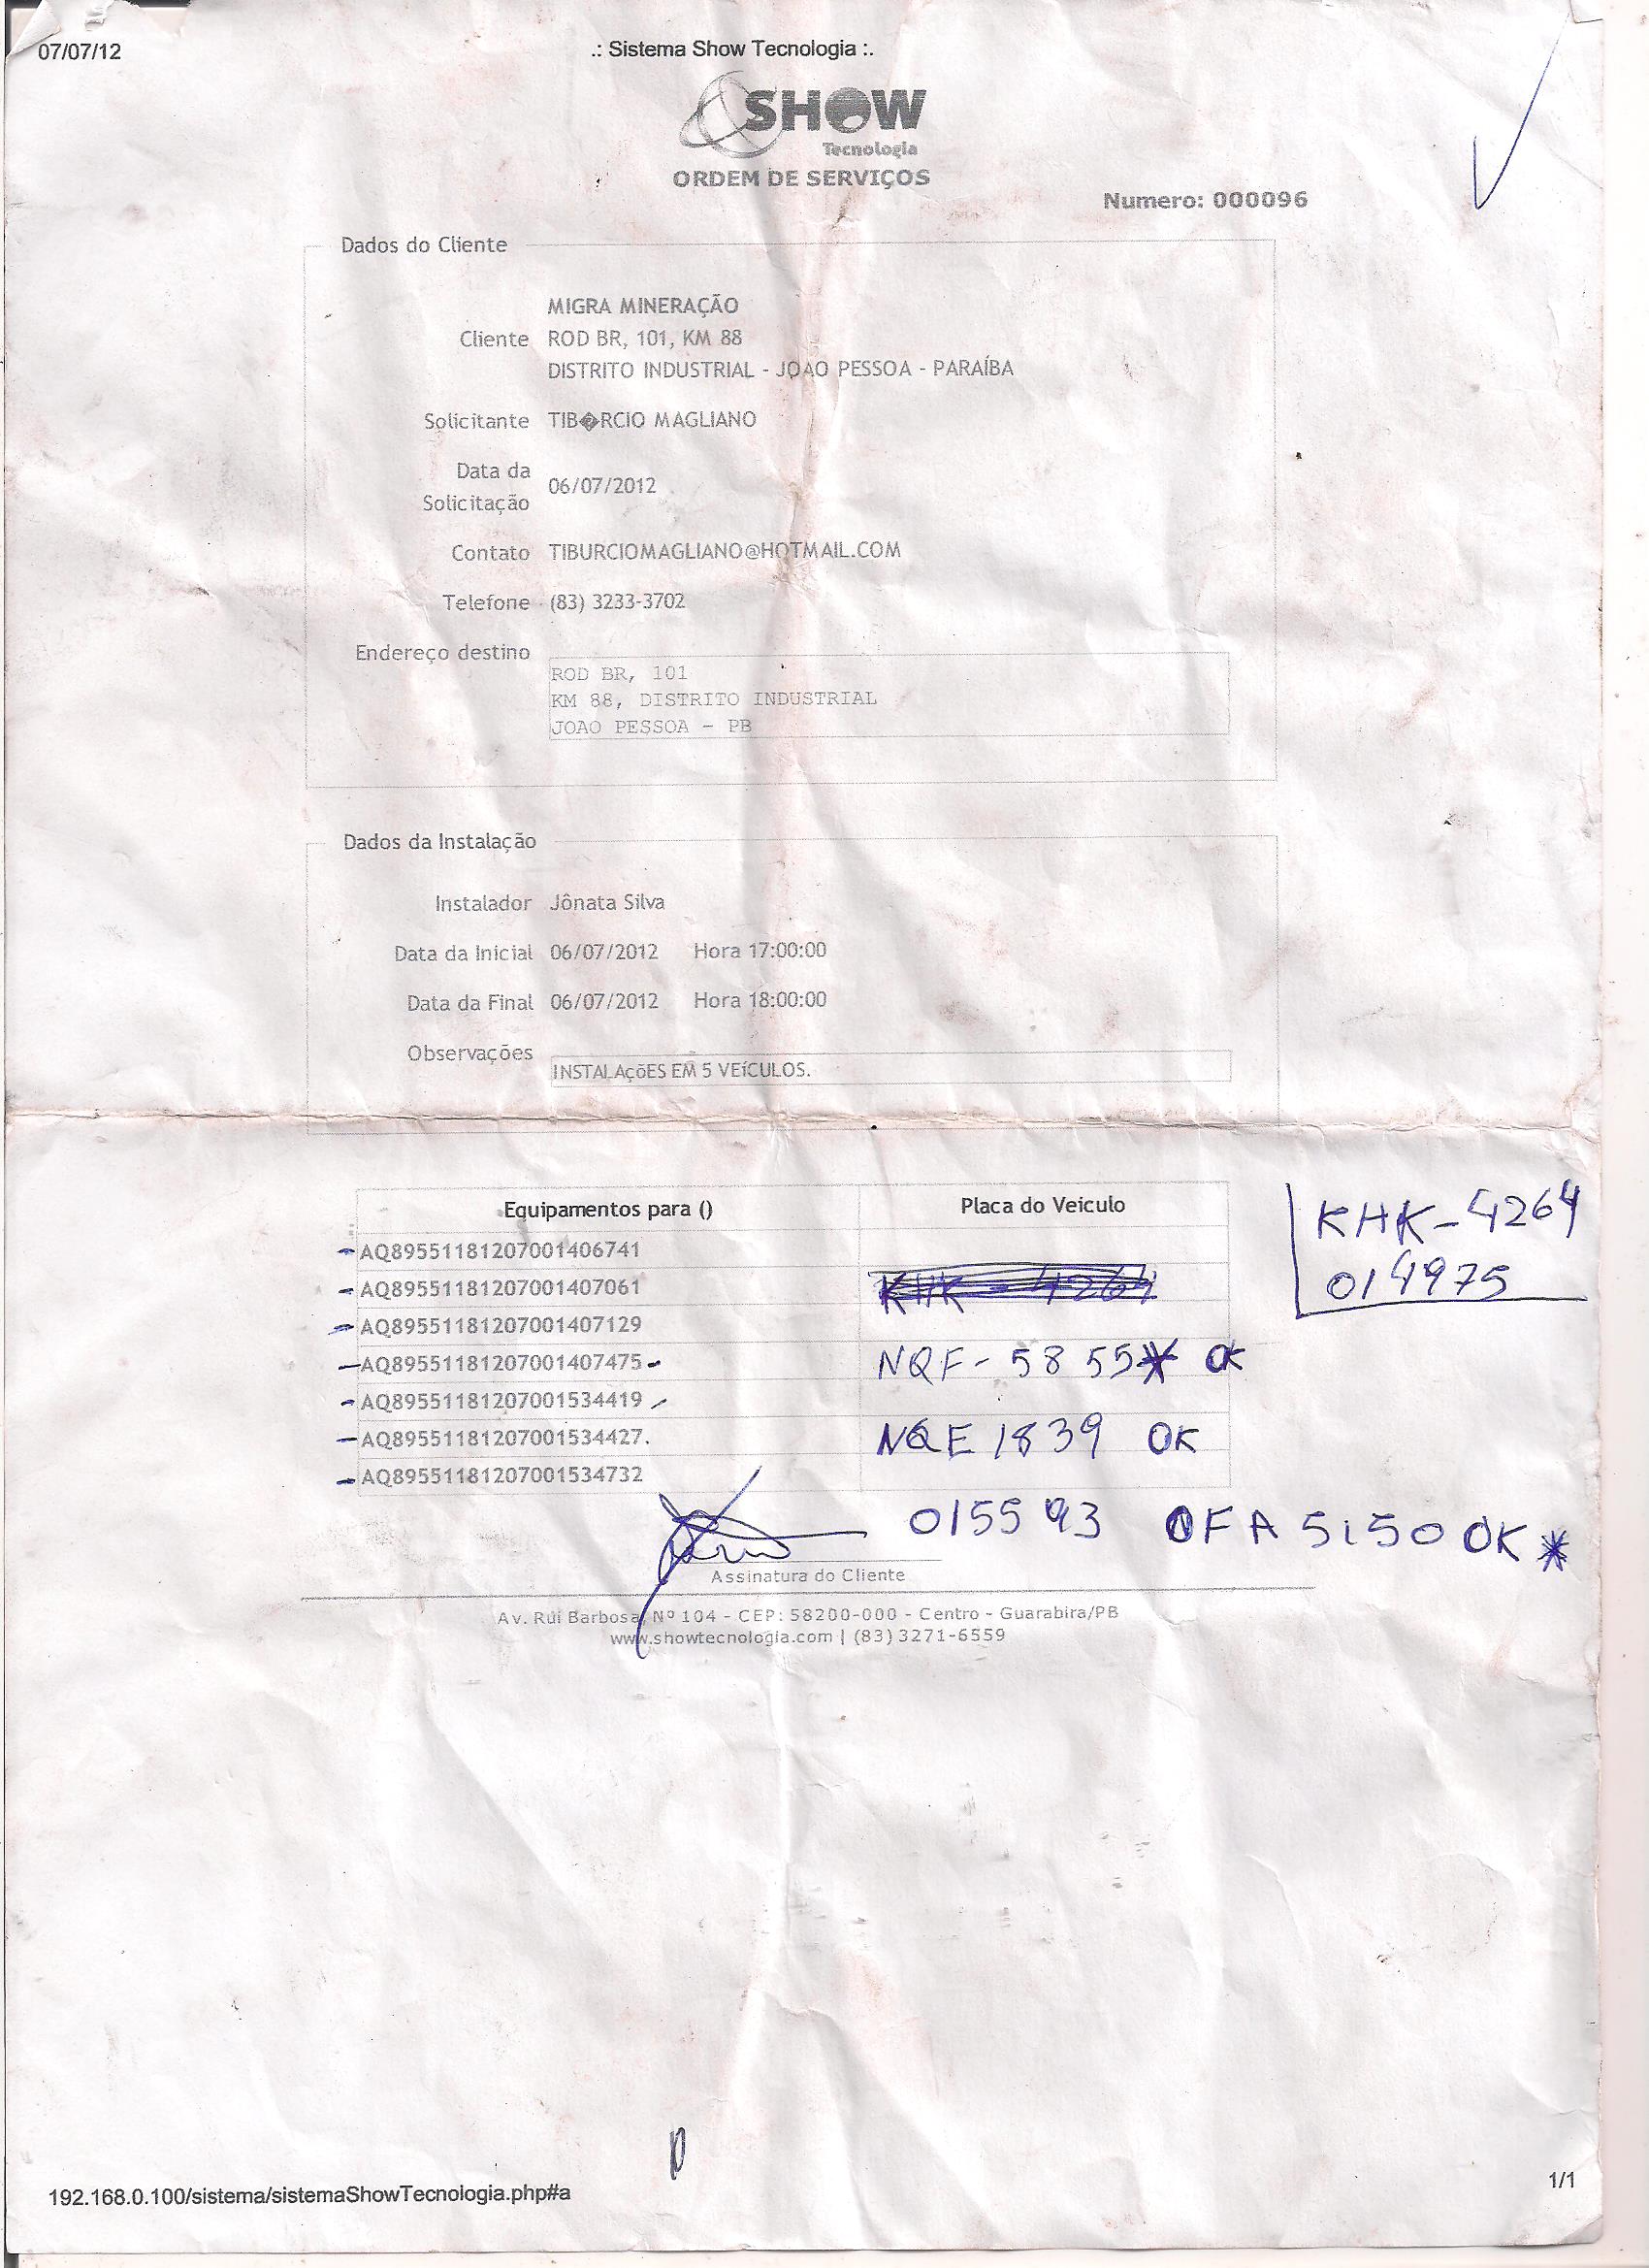 07/07/12
.: Sistema Show Tecnologia :.
SHOW
Tecnologia
ORDEM DE SERVIÇOS
Numero: 000096
Dados do Cliente
MIGRA MINERAÇÃO
Cliente ROD BR, 101, KM 88
DISTRITO INDUSTRIAL - JOAO PESSOA - PARAÍBA
Solicitante TIB�RCIO MAGLIANO
Data da
Solicitação 06/07/2012
Contato TIBURCIOMAGLIANO@HOTMAIL.COM
Telefone (83) 3233-3702
Endereço destino
ROD BR, 101
KM 88, DISTRITO INDUSTRIAL
JOAO PESSOA - PB
Dados da Instalação
Instalador Jônata Silva
Data da Inicial 06/07/2012 Hora 17:00:00
Data da Final 06/07/2012 Hora 18:00:00
Observações
INSTALAçõES EM 5 VEíCULOS.
Equipamentos para () Placa do Veiculo
KHK-4264
014975
AQ89551181207001406741
AQ89551181207001407061 KHK-4264
AQ89551181207001407129
AQ89551181207001407475 NQF-5855* OK
AQ89551181207001534419
AQ89551181207001534427. NQE 1839 OK
AQ89551181207001534732
015593 OFA 5150 OK *
Assinatura do Cliente
Av. Rui Barbosa, Nº 104 - CEP: 58200-000 - Centro - Guarabira/PB
www.showtecnologia.com | (83) 3271-6559
192.168.0.100/sistema/sistemaShowTecnologia.php#a
1/1